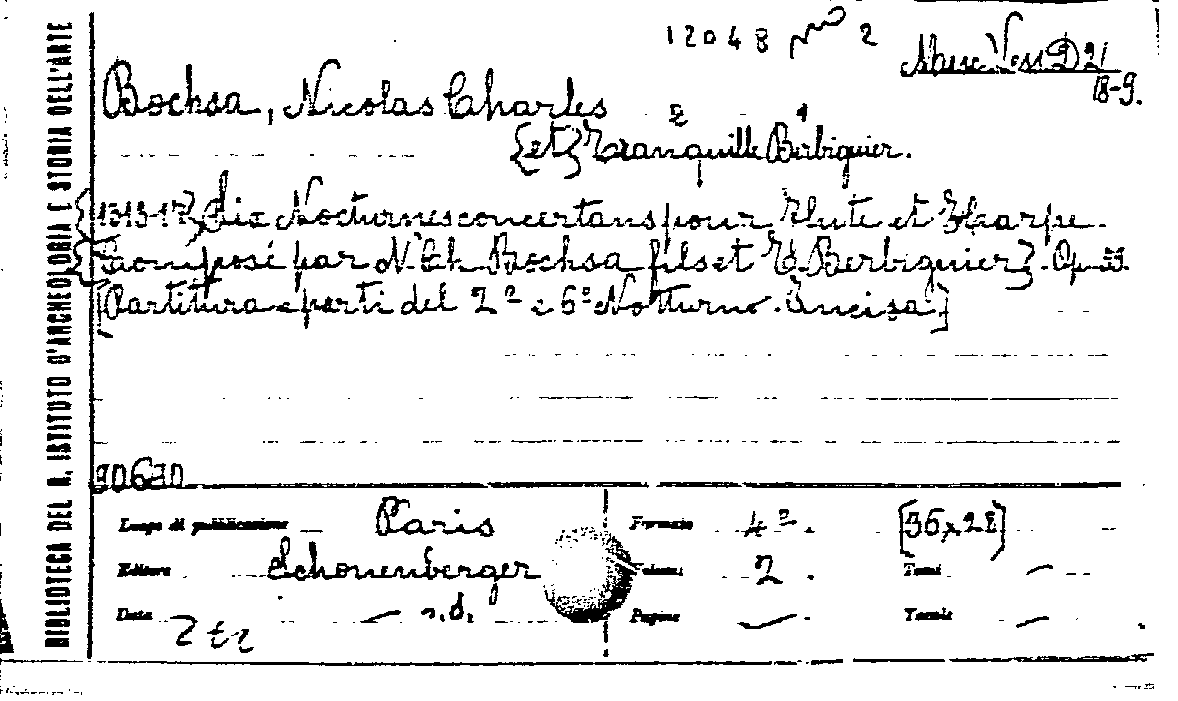 12048 2 Musc. Vess D 21
18-9.
Bochsa, Nicolas Charles
2 1
{et} Tranquille Berbiguier.
Six Nocturnes concertans pour Flute et Harpe.
Composé par N. Ch. Bochsa fils et T. Berbiguier}. Op.
[Partitura e parti del 2º e 6º Notturno. Incisa.]
90630
Luogo di pubblicazione Paris Formato 4º. [36x28]
Editore Schonenberger Volumi 2. Tomi —
Data — s.d. Pagine — . Tavole —
BIBLIOTECA DEL R. ISTITUTO D'ARCHEOLOGIA E STORIA DELL'ARTE